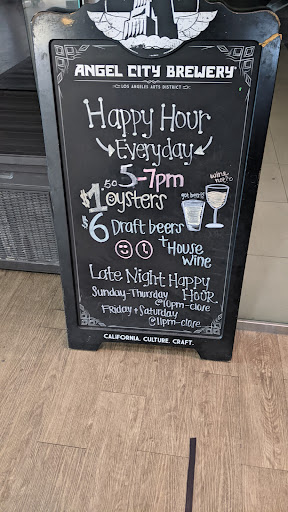 ANGEL CITY BREWERY
LOS ANGELES ARTS DISTRICT
Happy Hour
Everyday
5-7pm
$1.50 oysters
wine not?
got beer?
$6 Draft beers
+ House
wine
Late Night Happy
Hour
Sunday-Thursday
@10pm-close
Friday + Saturday
@11pm-close
CALIFORNIA. CULTURE. CRAFT.